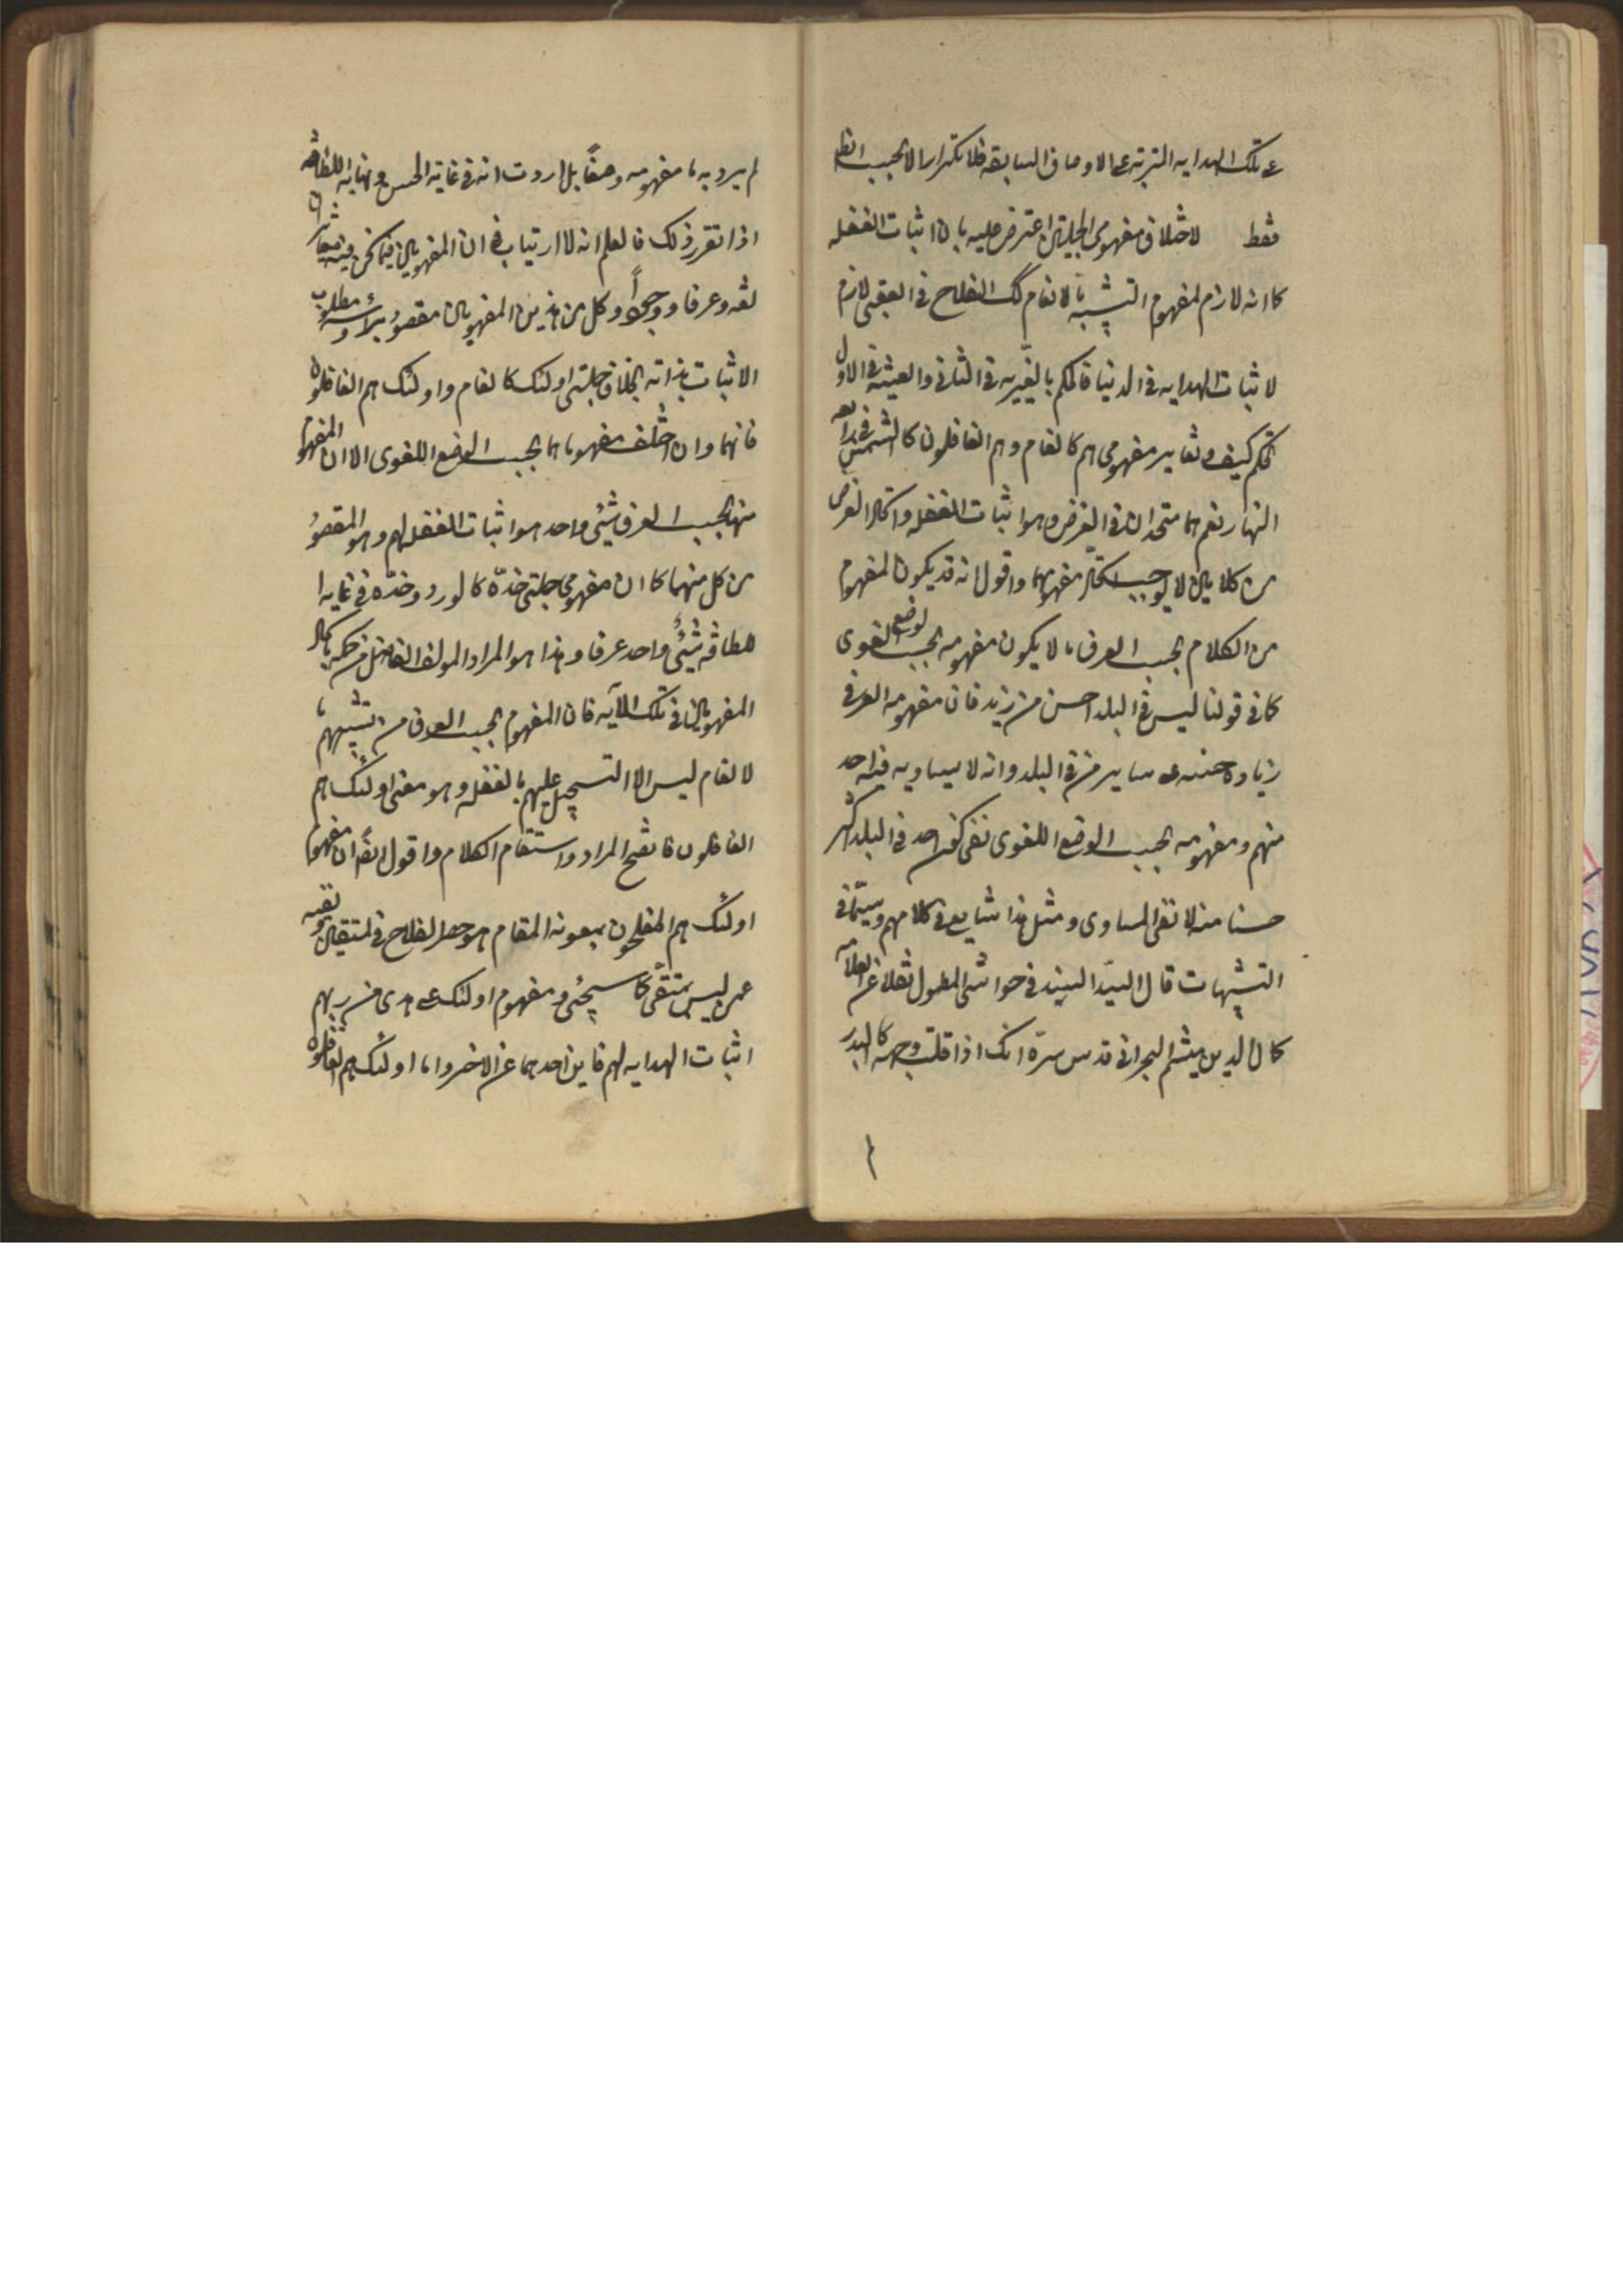 على تلك الهدايه المترتبه على الاوصاف السابقه فلا تكرار الا بحسب
فقط لاختلاف مفهومى الجملتين اعترض عليه بان اثبات الغفله
كما انه لازم لمفهوم التشبيه بالانعام كك الفلاح فى العقبى لازم
لاثبات الهدايه فى الدنيا فالحكم بالغيريه فى الثانى والعينيه فى الاول
تحكم كيف وتغاير مفهومى هم كالانعام وهم الغافلون كالشمس فى رابعه
النهار نعم هما متحدان فى الغرض وهو اثبات الغفله واتحاد الغرض
من كلامين لا يوجب اتحاد مفهوميهما واقول انه قد يكون المفهوم
من الكلام بحسب العرف ما لا يكون مفهومه بحسب الوضع اللغوى
كما فى قولنا ليس فى البلد احسن من زيد فان مفهومه العرفى
زياده حسنه على ساير من فى البلد وانه لا يساويه فيه احد
منهم ومفهومه بحسب الوضع اللغوى نفى كون احد فى البلد اكثر
حسنا منه لا نفى المساوى ومثل هذا شايع فى كلامهم وسيما فى
التشبيهات قال السيد السند فى حواشى المطول نقلا عن العلامه
كمال الدين ميثم البحرانى قدس سره انك اذا قلت وجهه كالبدر
لم يرد به ما مفهومه وضعا بل اردت انه فى غايه الحسن ونهايه اللطافه
اذا تقرر ذلك فالعلم انه لا ارتياب فى ان المفهومين فيما نحن فيه متغايران
لغه وعرفا ووجودا وكل من هذين المفهومين مقصود براسه ومطلوب
الاثبات بذاته بخلاف جملتى اولئك كالانعام واولئك هم الغافلون
فانهما وان اختلف مفهوماهما بحسب الوضع اللغوى الا ان المفهوم
منهما بحسب العرف شيئ واحد هو اثبات الغفله لهم وهو المقصود
من كل منهما كما ان مفهومى جملتى خده كالورد وخده فى غايه
اللطافه شيئ واحد عرفا وهذا هو المراد المولف الفاضل من حكمه باتحاد
المفهومين فى تلك الآيه فان المفهوم بحسب العرف من تشبيههم
بالانعام ليس الا التسجيل عليهم بالغفله وهو معنى اولئك هم
الغافلون فاتضح المراد واستقام الكلام واقول ايضا ان مفهوم
اولئك هم المفلحون بمعونه المقام هو حصر الفلاح فى المتقين ونفيه
عمن ليس بمتقى كما سيجئ ومفهوم اولئك على هدى من ربهم
اثبات الهدايه لهم فاين احدهما عن الاخر واما اولئك هم الغافلون